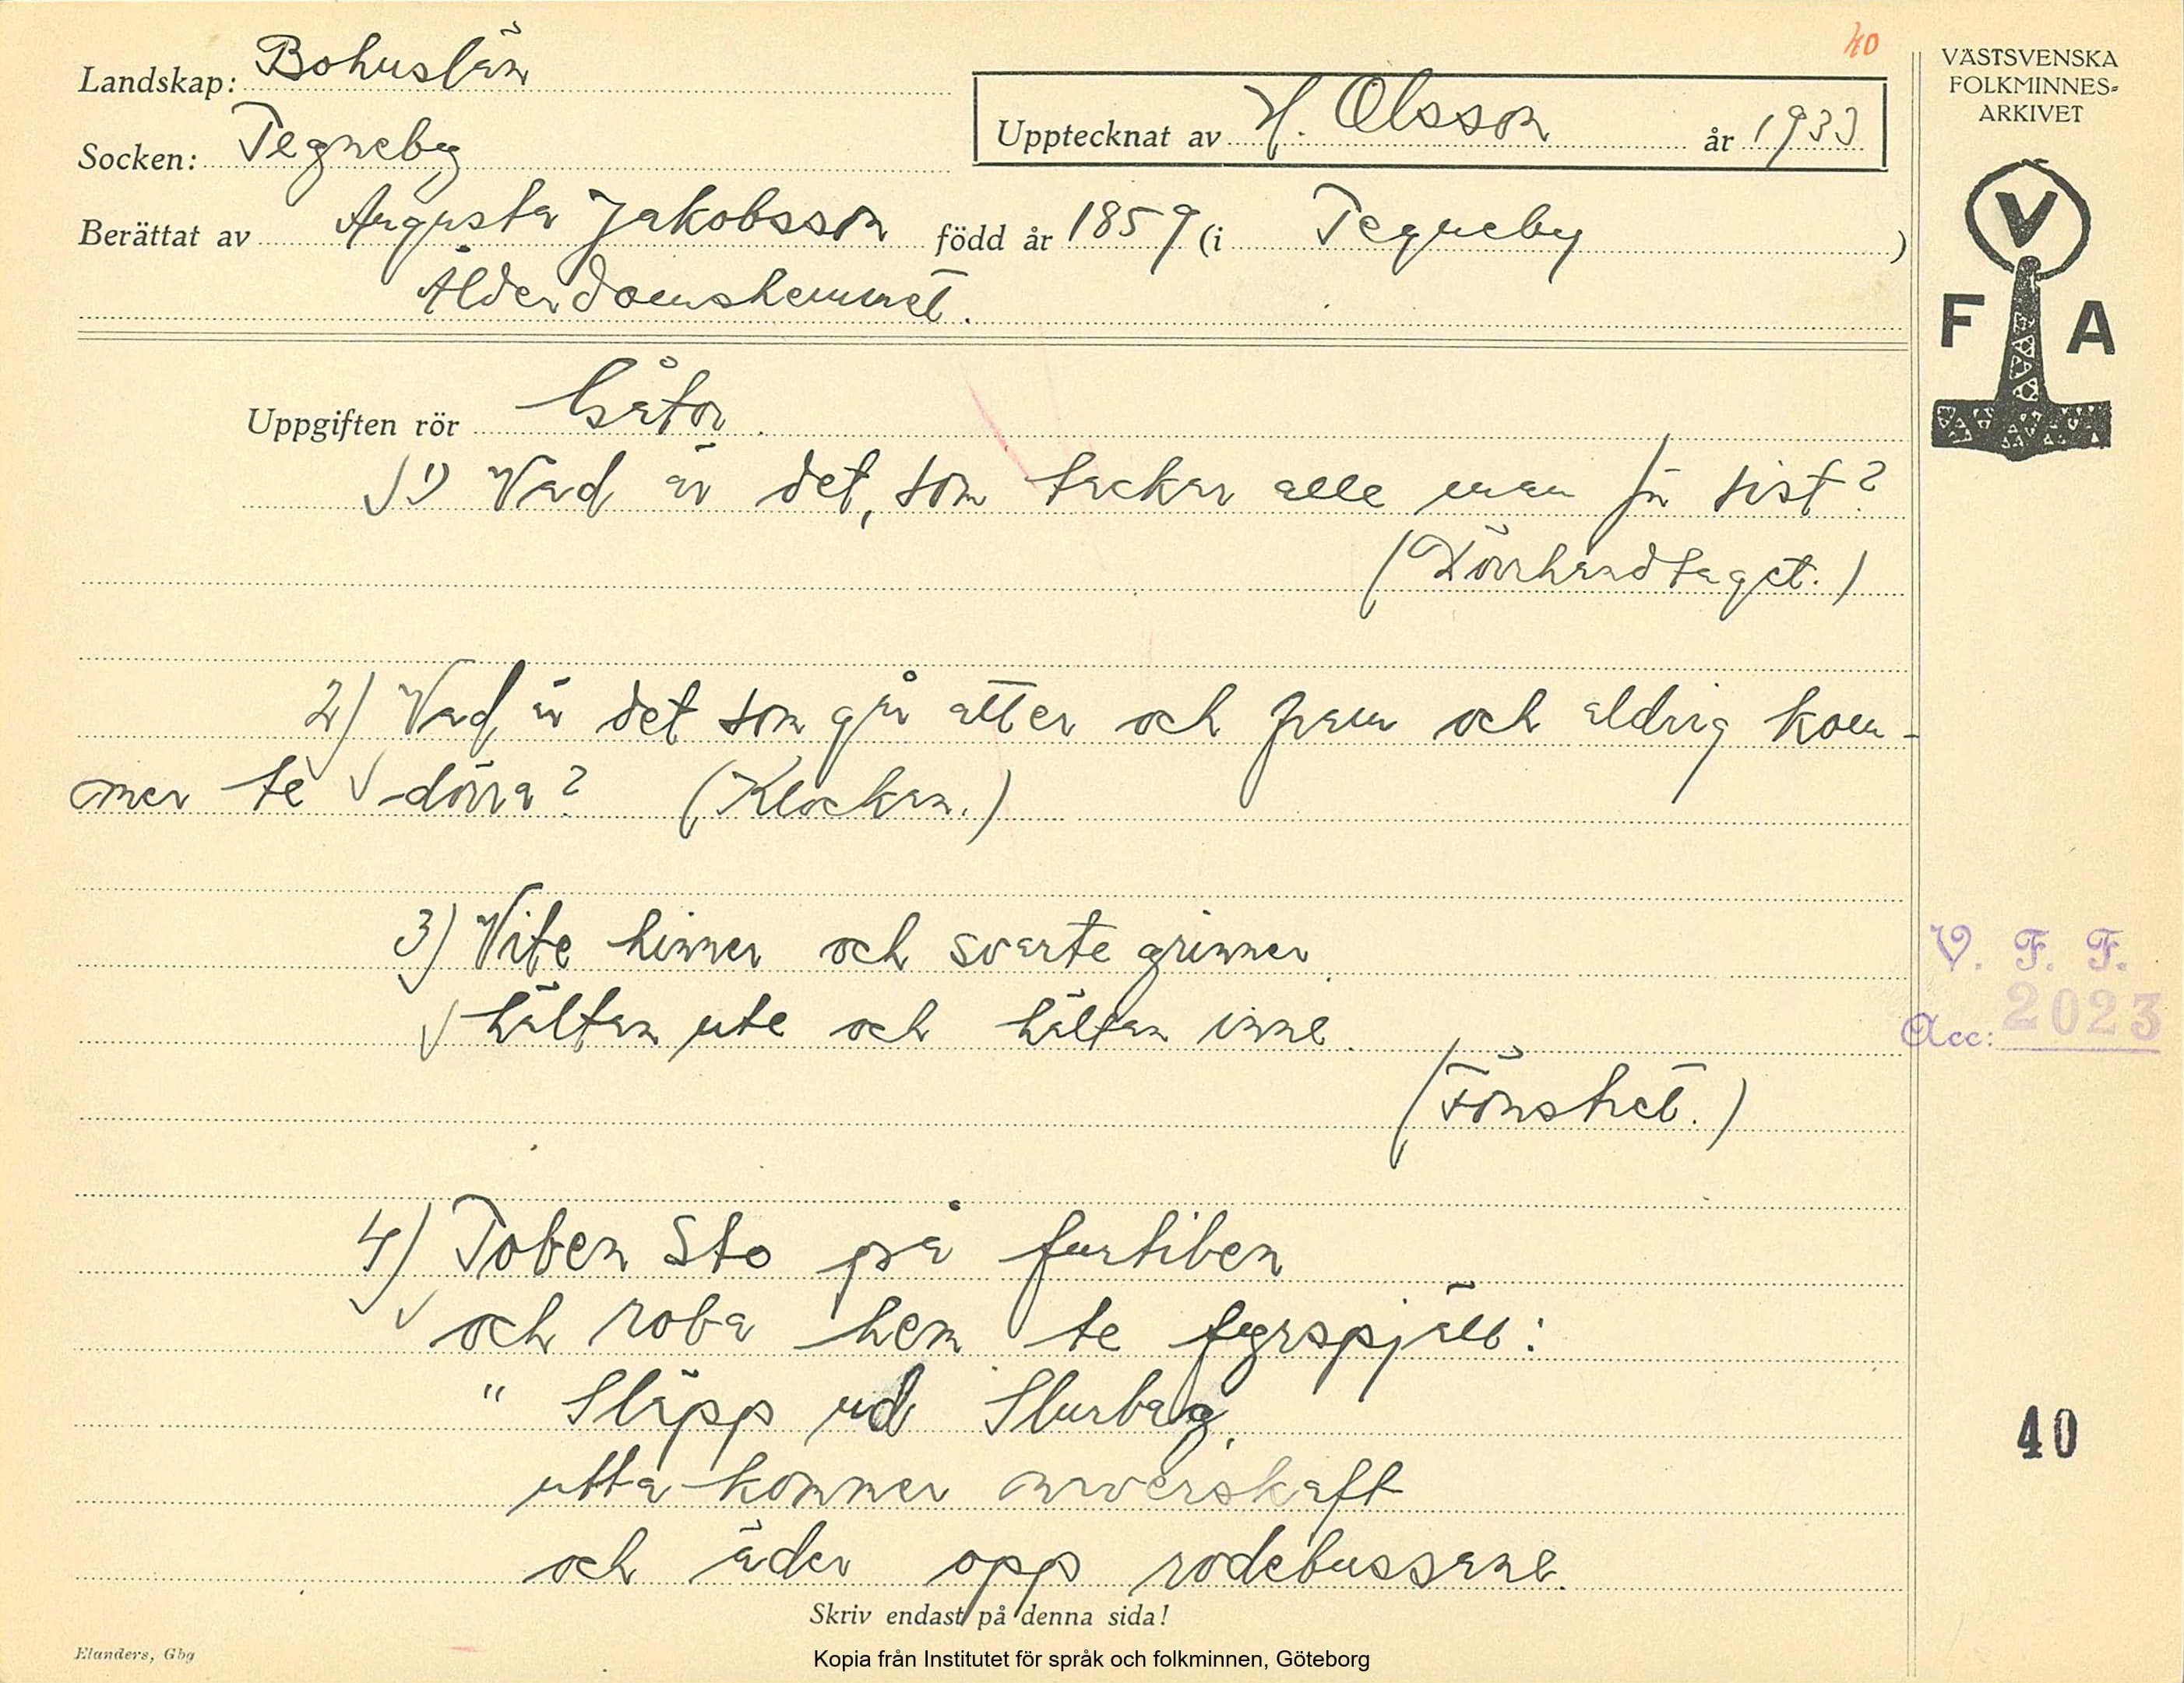 40
Landskap: Bohuslän
Upptecknat av H. Olsson år 1933
Socken: Tegneby
Berättat av Augusta Jakobsson född år 1859 (i Tegneby)
Ålderdomshemmet.
VÄSTSVENSKA
FOLKMINNES=
ARKIVET
V
F A
Uppgiften rör Gåtor.
1) Vad är det, som tackar alle man får sist?
(Dörrhandtaget.)
2) Vad är det som går atter och fram och aldrig kom-
mer te dörra? (Klockan.)
3) Vite hinner och svarte grinner
hälften ute och hälften inne.
(Fönstret.)
V. F. F.
Acc: 2023
4) Toben Sto på furtiben
och roba hem te fyrspjäll:
" Släpp ud Slurbag,
utta kommer murverskaft
och äder opp rodebussane.
40
Skriv endast på denna sida!
Elanders, Gbg
Kopia från Institutet för språk och folkminnen, Göteborg